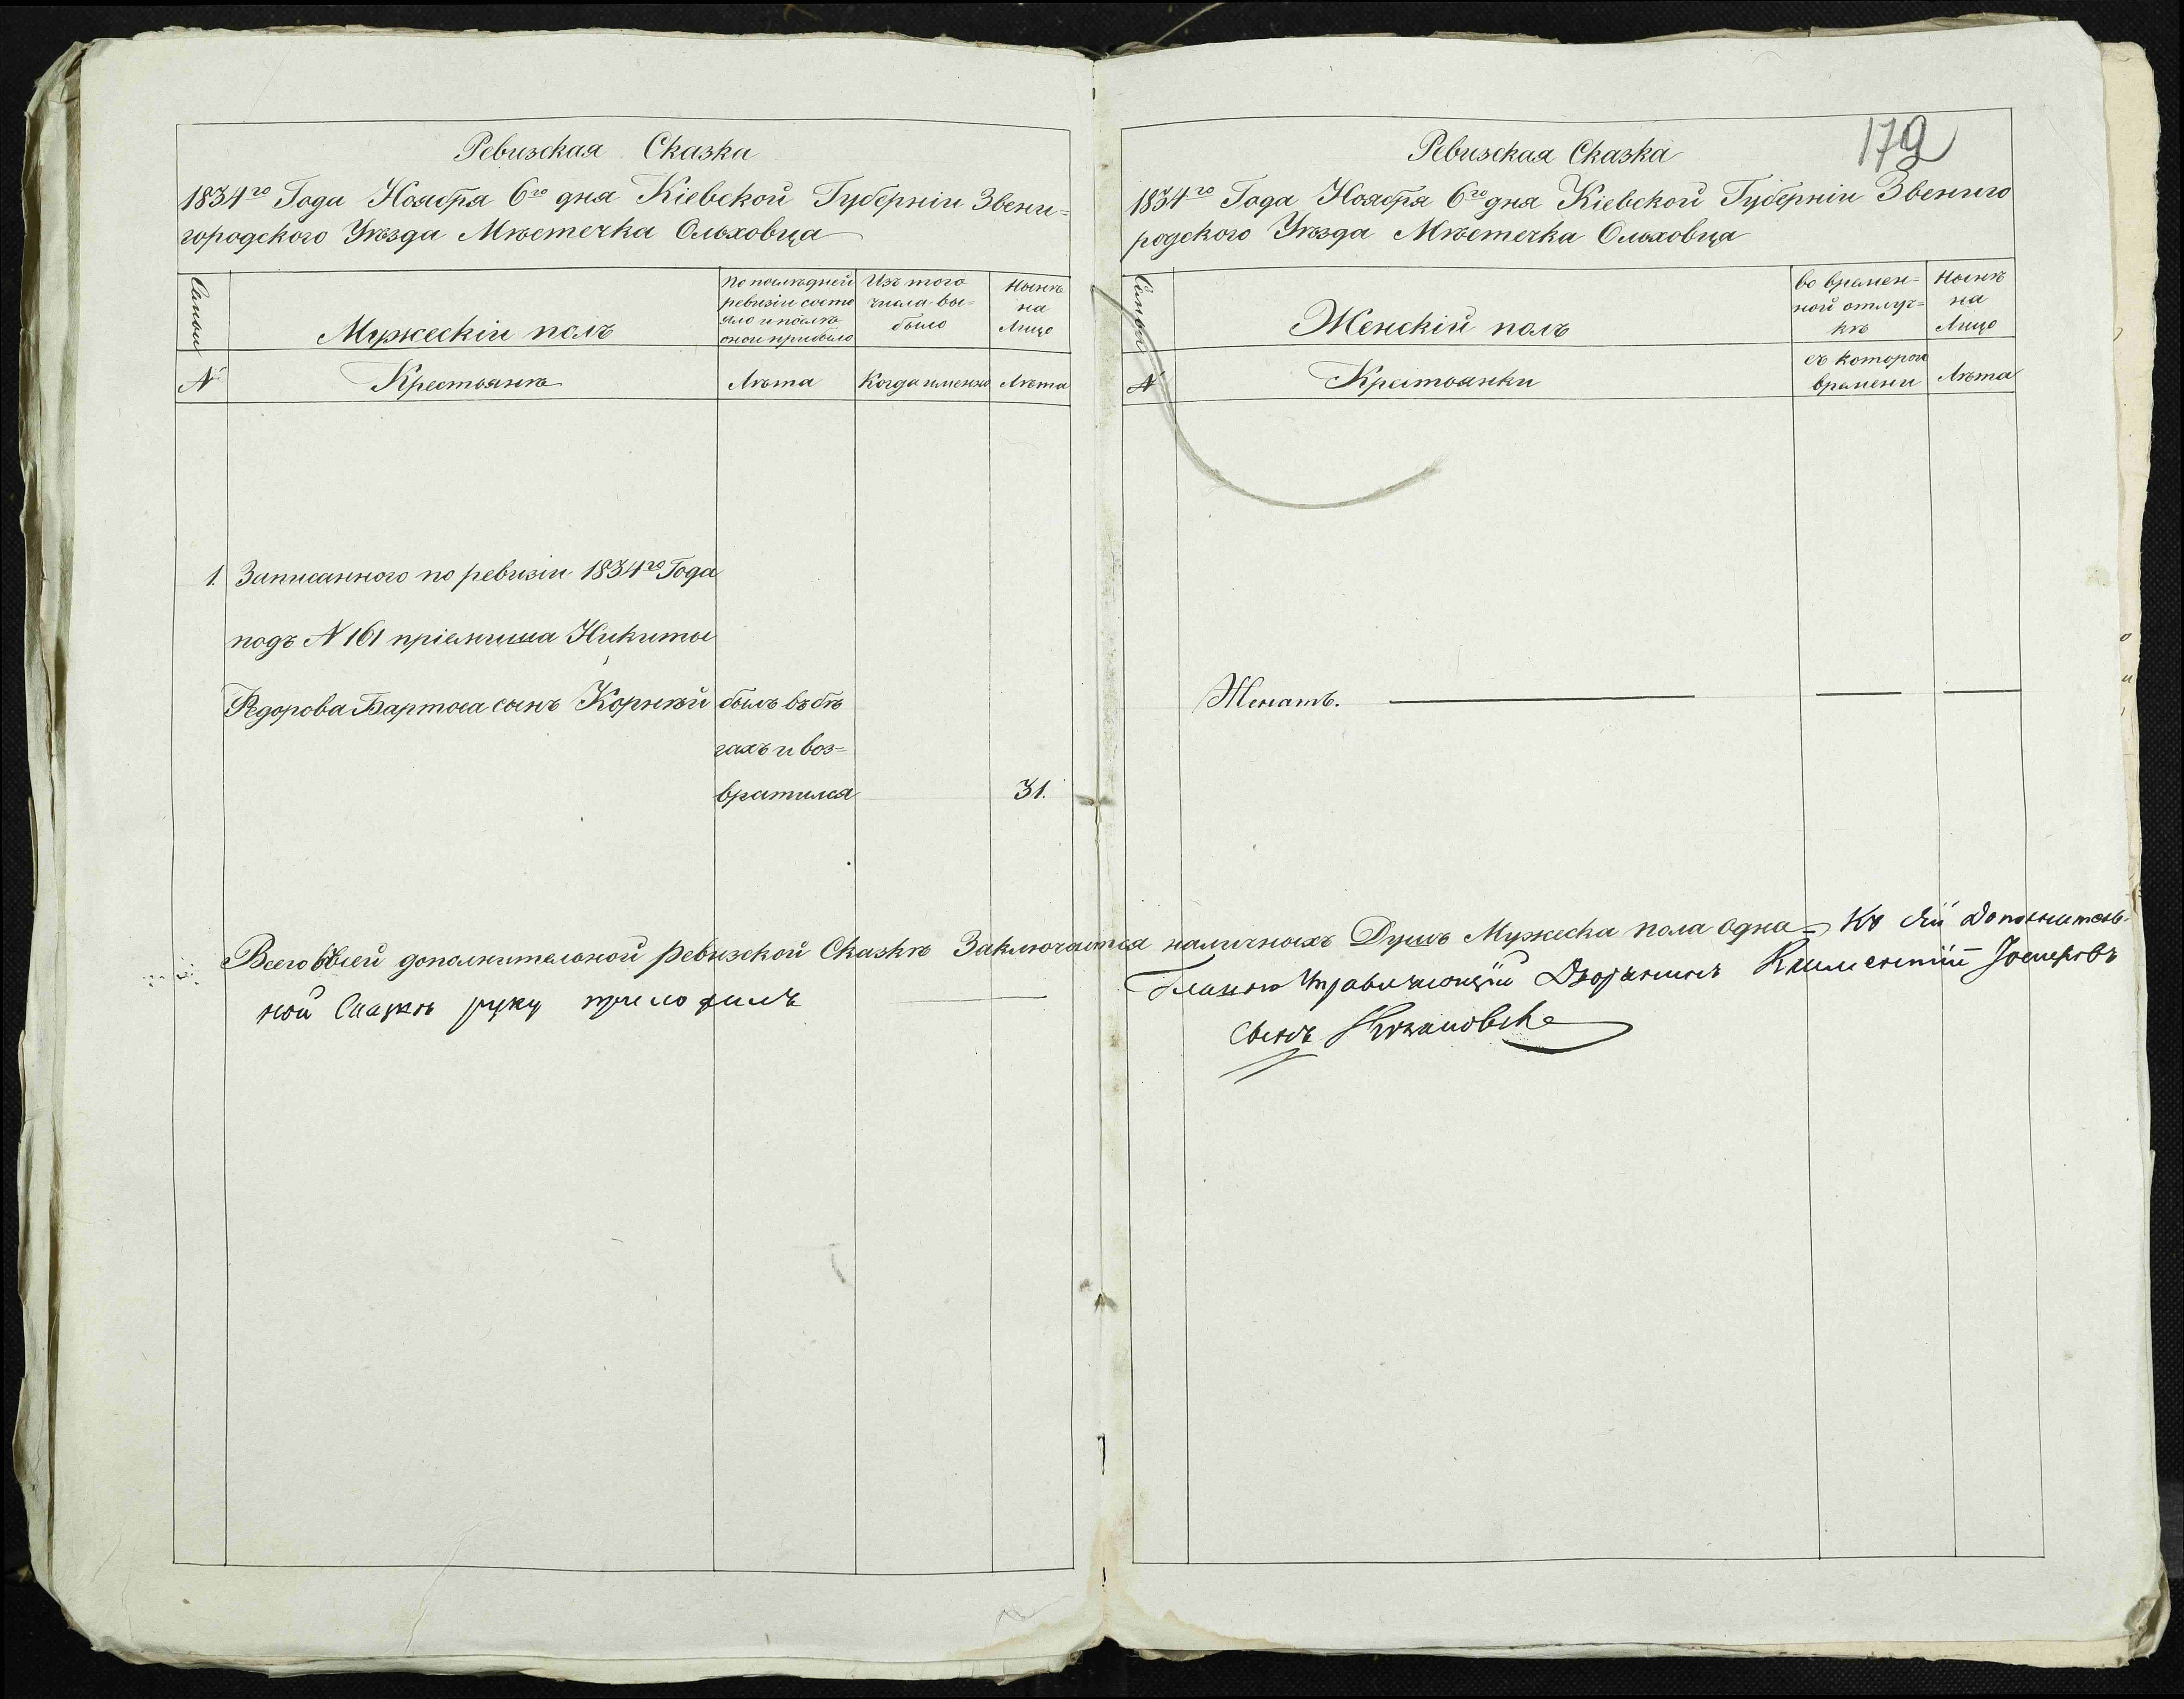 Ревизская Сказка
1834го Года Ноября 6го дня Кіевской Губерніи Звени=
городского Уѣзда Мѣстечка Ольховца
Мужескій полъ
По послѣдней
ревизіи состо
яло и послѣ
оной прибыло
Изъ того
числа вы=
было
Нынѣ
на
Лицо
№
Крестьянѣ
Лѣта
Когда именно
Лѣта
1. Записанного по ревизіи 1834го Года
подъ № 161 пріемыша Никиты
Федорова Бартоша сынъ Корнѣй
былъ въ бѣ
гахъ и воз=
вратился
31.
Ревизская Сказка
179
1834го Года Ноября 6го дня Кіевской Губерніи Звениго
родского Уѣзда Мѣстечка Ольховца
Женскій полъ
во времен=
ной отлуч=
кѣ
Нынѣ
на
Лицо
№
Крестьянки
съ которого
времени
Лѣта
Женатъ.
Всего въ сей дополнительной ревизской Сказкѣ Заключается наличныхъ Душъ Мужеска пола одна = Къ сѣй дополнитель-
ной Сказкѣ руку приложилъ
Управляющій Дворянинъ
сынъ